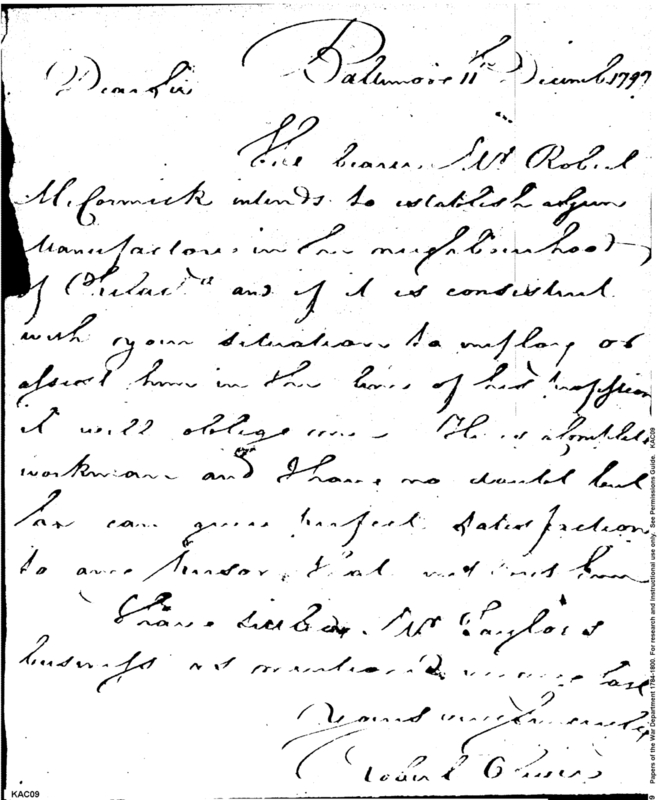 Baltimore 11th Decemb 1797
Dear Sir
The bearer Mr Robert
McCormick intends to establish a Gun
Manufactore in the neighbourhood
of Philad.a and if it is consistent
with your situation to imploy or
assist him in the line of his profession
it will oblige me. He is a complete
workman and I have no doubt but
he can give perfect satisfaction
to any person that
I have settled Mr Taylor's
business as mentiond in my last
Yours
Robert
KAC09
Papers of the War Department 1784-1800. For research and instructional use only. See Permissions Guide. KAC09